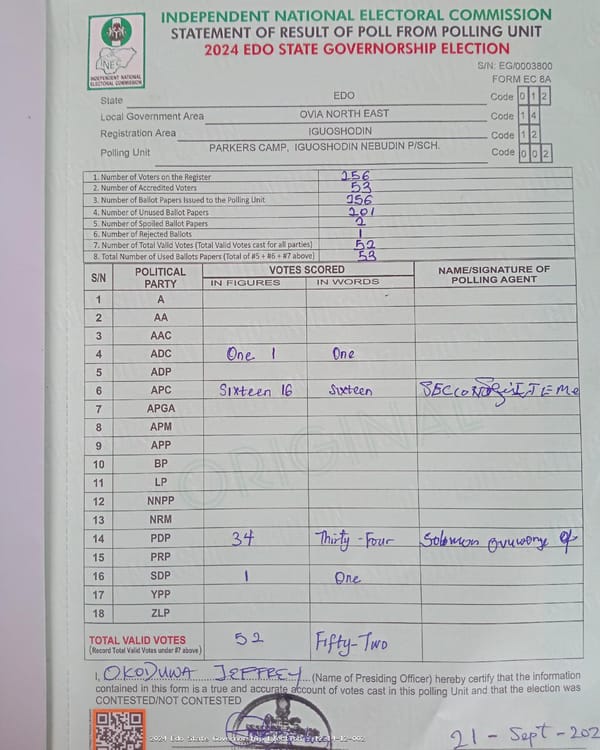 INDEPENDENT NATIONAL ELECTORAL COMMISSION
STATEMENT OF RESULT OF POLL FROM POLLING UNIT
2024 EDO STATE GOVERNORSHIP ELECTION
INEC
INDEPENDENT NATIONAL ELECTORAL COMMISSION
S/N: EG/0003800
FORM EC 8A
State EDO Code 0 1 2
Local Government Area OVIA NORTH EAST Code 1 4
Registration Area IGUOSHODIN Code 1 2
Polling Unit PARKERS CAMP, IGUOSHODIN NEBUDIN P/SCH. Code 0 0 2
1. Number of Voters on the Register 256
2. Number of Accredited Voters 53
3. Number of Ballot Papers Issued to the Polling Unit 256
4. Number of Unused Ballot Papers 201
5. Number of Spoiled Ballot Papers 2
6. Number of Rejected Ballots 1
7. Number of Total Valid Votes (Total Valid Votes cast for all parties) 52
8. Total Number of Used Ballots Papers (Total of #5 + #6 + #7 above) 53
S/N POLITICAL PARTY VOTES SCORED NAME/SIGNATURE OF POLLING AGENT
IN FIGURES IN WORDS
1 A
2 AA
3 AAC
4 ADC One 1 One
5 ADP
6 APC Sixteen 16 Sixteen
7 APGA
8 APM
9 APP
10 BP
11 LP
12 NNPP
13 NRM
14 PDP 34 Thirty-Four Solomon
15 PRP
16 SDP 1 One
17 YPP
18 ZLP
ORIGINAL
TOTAL VALID VOTES 52 Fifty-Two
(Record Total Valid Votes under #7 above)
I, OKODUWA JEFFREY (Name of Presiding Officer) hereby certify that the information
contained in this form is a true and accurate account of votes cast in this polling Unit and that the election was
CONTESTED/NOT CONTESTED
21 - Sept - 202